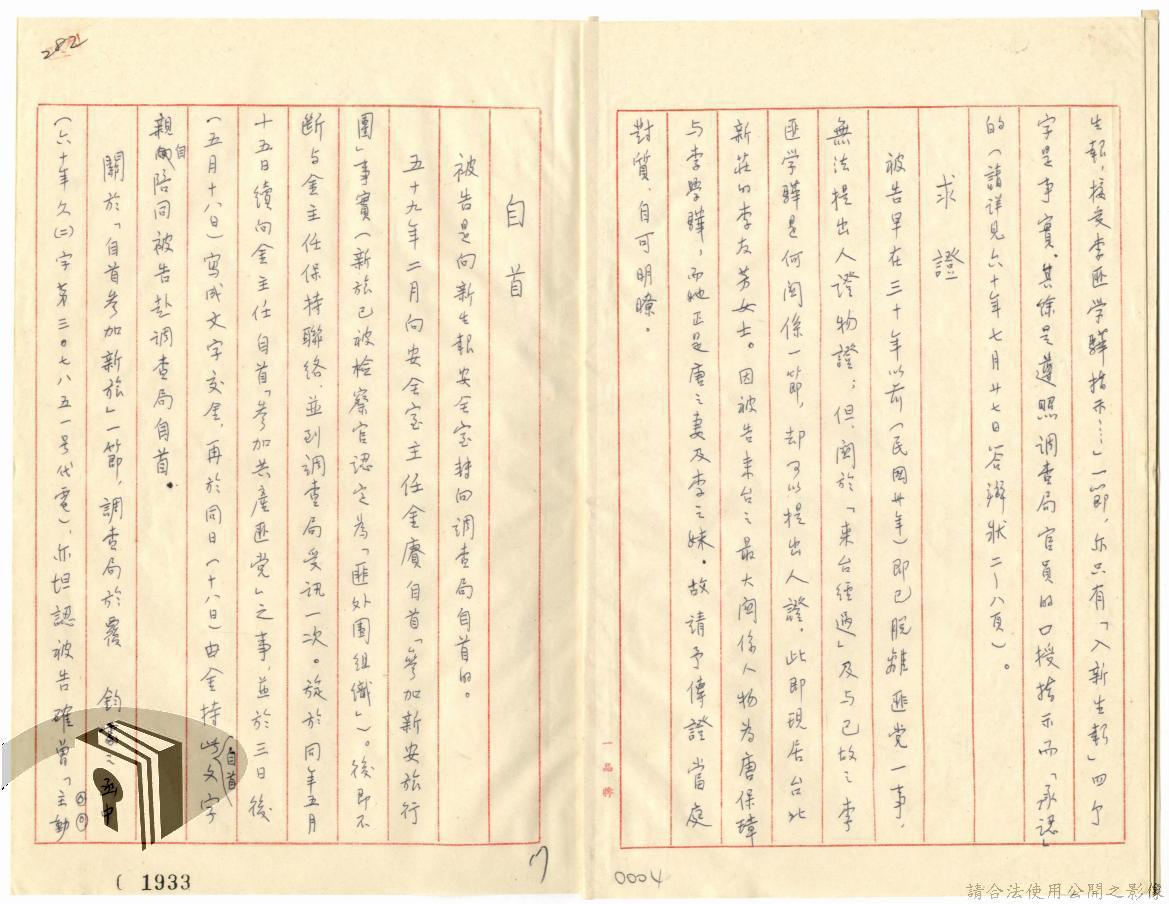 生報,接受李匪学驊指示……」一節,亦只有「入新生報」四个
字是事實。其餘是遵照調查局官員的口授指示而「承認」
的(請詳見六十年七月廿七日答辯狀二—八頁)。
求證
被告早在三十年以前(民国廿年)即已脫離匪党一事,
無法提出人證物證;但,関於「來台經過」及与已故之李
匪学驊是何関係一節,却可以提出人證,此即現居台北
新莊的李友芳女士。因被告來台之最大関係人物為唐保璋
与李學驊,而她正是唐之妻及李之妹。故請予傳證當庭
對質,自可明瞭。
一品牌
0004
自首
被告是向新生報安全室轉向調查局自首的。
五十九年二月向安全室主任金賡自首「參加新安旅行
團」事實(新旅已被檢察官認定為「匪外圍組織」)。後即不
斷与金主任保持聯絡,並到調查局受訊一次。旋於同年五月
十五日續向金主任自首「參加共產匪党」之事,並於三日後
(五月十八日)寫成文字交金,再於同日(十八日)由金持此自首文字
親自陪同被告赴調查局自首。
關於「自首參加新旅」一節,調查局於覆 鈞部之函中
(六十年久(二)字第三〇七八五一号代電),亦坦認被告確曾「主動
282
( 1933
請合法使用公開之影像